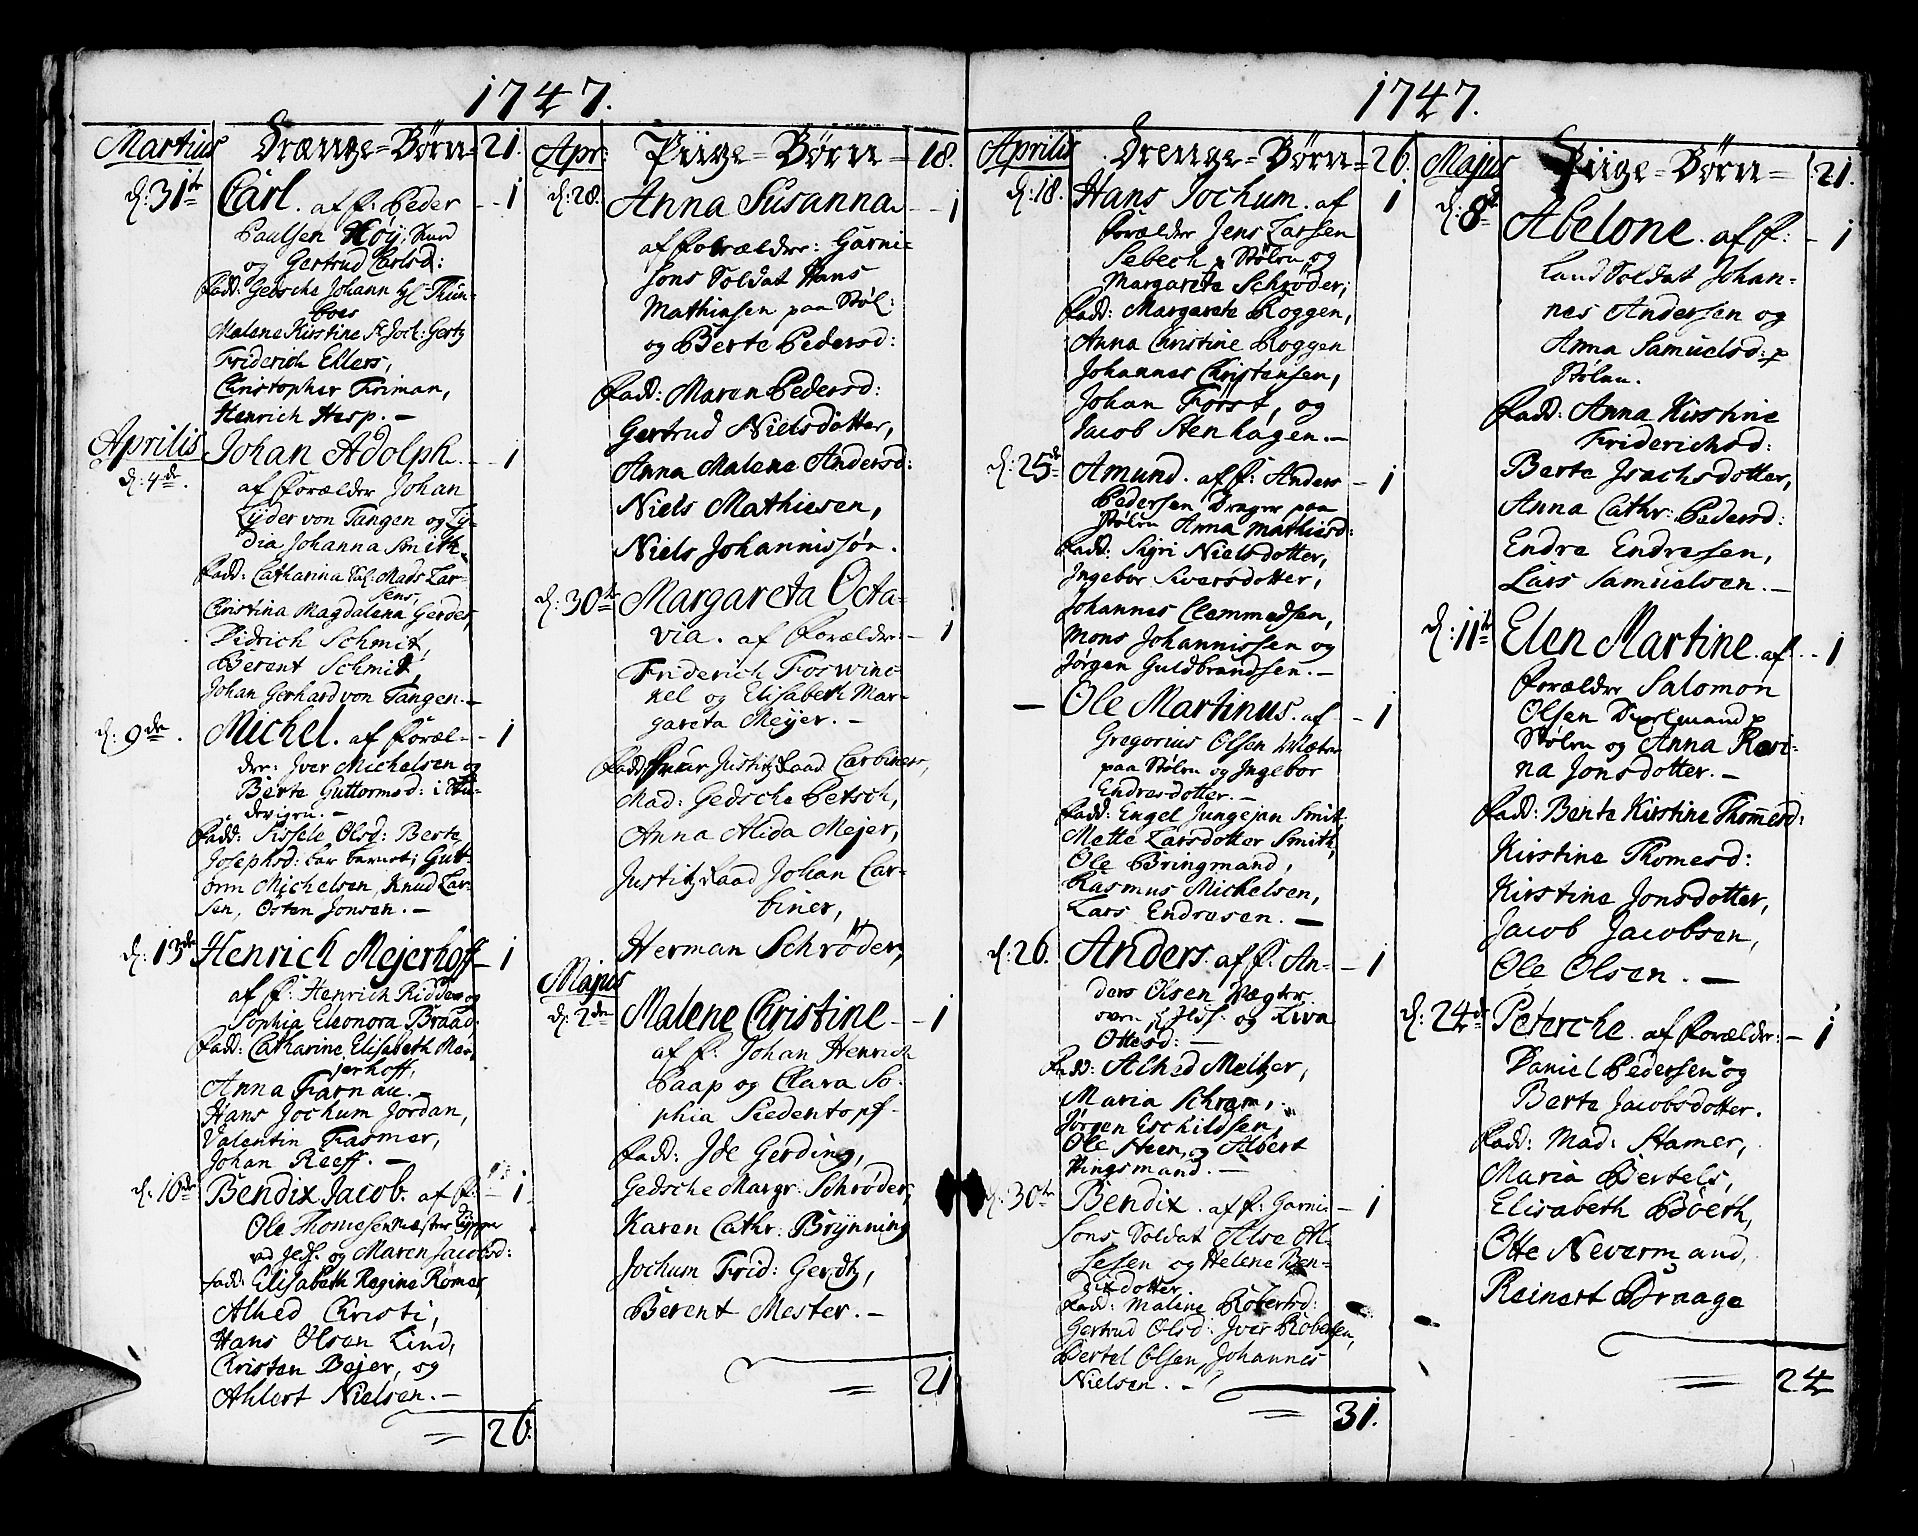 1747.
Martius Drænge=Børn= 21.
d: 31te Carl. af f: Peder - 1
Paulsen Høÿ, Kund
og Gertrud Carlsd:
fadd: Gedsche Johann Hl: Thün-
boes
Malene Kirstine St. Joch: Gertz
Friderich Ehlers,
Christopher Friman,
Henrich Hesp. -
Aprilis
d: 4de. Johan Adolph. - 1
af forælder Johan
Lÿder von Tangen og Lÿ-
dia Johanna Smith.
fadd: Catharina Sal: Mads Lar-
sens,
Christina Magdalena Gerdes,
Didrich Schmit,
Berent Schmit,
Johan Gerhard von Tangen. -
d: 9de. Michel. af foræl- - 1
der: Iver Michelsen og
Berte Guttormsd: i Sku-
devigen. -
fadd: Sissele Olsd: Berte
Josephsd: bar barnet; Gutt-
orm Michelsen, Knud Lar-
sen, Osten Jonsen. -
d: 13de Henrich Mejerhoff - 1
af f: Henrich Ridder og
Sophia Eleonora Braad.
fadd: Catharine Elisabeth Mej-
jerhoff,
Anna Farnau. -
Hans Jochum Jordan,
Valentin Fasmer,
Johan Reeff. -
d: 16de Bendix Jacob. af f: - 1
Ole Thomesen Mester
ved Jeds. og Maren Jacobsd:
fadd: Elisabeth Regine Rømer,
Alhed Christi,
Hans Olsen Lind,
Christen Bejer, og
Ahlert Nielsen. -
26.
Apr: Piige=Børn= 18.
d: 28. Anna Susanna. - 1
af forælder: Garni-
sons Soldat Hans
Mathiasen paa Støl:
og Berte Pedersd:
fadd: Maren Pedersd:
Gertrud Nielsdatter,
Anna Malene Andersd:
Niels Mathiesen,
Niels Johannissøn.
d: 30te Margareta Octa- 1
via. af forælder: - 1
Friderich Forswinc-
kel og Elisabeth Mar-
gareta Meÿer. -
fadd: Frue Justitz Raad Carbiners,
Mad: Gedsche Petsch,
Anna Alida Mejer,
Justitz Raad Johan Car-
biner,
Herman Schrøder,
Majus
d: 2den Malene Christine - - 1
af f: Johan Henrich
Paap og Clara So-
phia Siedentopf -
fadd: Ide Gerding,
Gedsche Margr: Schrøder,
Karen Cathr: Brÿnning
Jochum Frid: Gerdtz,
Berent Mester. -
21
1747.
Aprilis Drenge=Børn= 26.
d: 18. Hans Jochum. af 1
forælder Jens Larsen
Sebech p Stølen og
Margareta Schrøder;
fadd: Margarete Roggen,
Anna Christine Roggen
Johannes Christensen,
Johan Først, og
Jacob Stenhagen. -
d: 25de Amund. af f: Anders - 1
Pedersen Drager paa
Stølen Anna Mathisd:
fadd: Sigri Nielsdotter,
Ingebor Siversdotter,
Johannes Clemmedsen,
Mons Johannissen og
Jørgen Guldbrandsen. -
- Ole Martinus. af - 1
Gregorius Olsen
paa Stølen og Ingebor
Endresdotter. -
fadd: Engel Jungejan Smit.
Mette Larsdotter Smith,
Ole Bringmand,
Rasmus Michelsen,
Lars Endresen. -
d: 26. Anders. af f. An- - 1
ders Olsen Vægter.
og Liva
Ottesd: -
fadd: Alhed Meltzer,
Maria Schram,
Jørgen Eschildsen,
Ole Steen, og Albert
Ringsmand. -
d: 30te Bendix. af f: Garni- - 1
sons Soldat Alse Ol-
sesen og Helene Ben-
dixdotter.
fadd: Maline Robertsd:
Gertrud Olsd: Iver Robertsen,
Bertel Olsen, Johannes
Nielsen. -
31.
Majus Piige=Børn= 21.
d: 8de Abelone. af f: - 1
Land Soldat Johan-
nes Andersen og
Anna Samuelsd: p
Stølen.
fadd: Anna Kirstine
Friderichsd:
Berte Isachsdotter,
Anna Cathr: Pedersd:
Endre Endresen,
Lars Samuelsen. -
d: 11te Elen Martine. af - 1
forælder Salomon
Olsen p
Stølen og Anna Rasi-
na Jonsdotter. -
fadd: Bente Kirstine Thommesd:
Kirstine Thomesd:
Kirstine Jonsdotter,
Jacob Jacobsen,
Ole Olsen. -
d: 24de Peterche. af forælder: - 1
Daniel Pedersen og
Berte Jacobsdotter.
fadd: Mad: Stamer,
Maria Bertels,
Elisabeth Böeth,
Otte Nevermand,
Reinert Braage
24